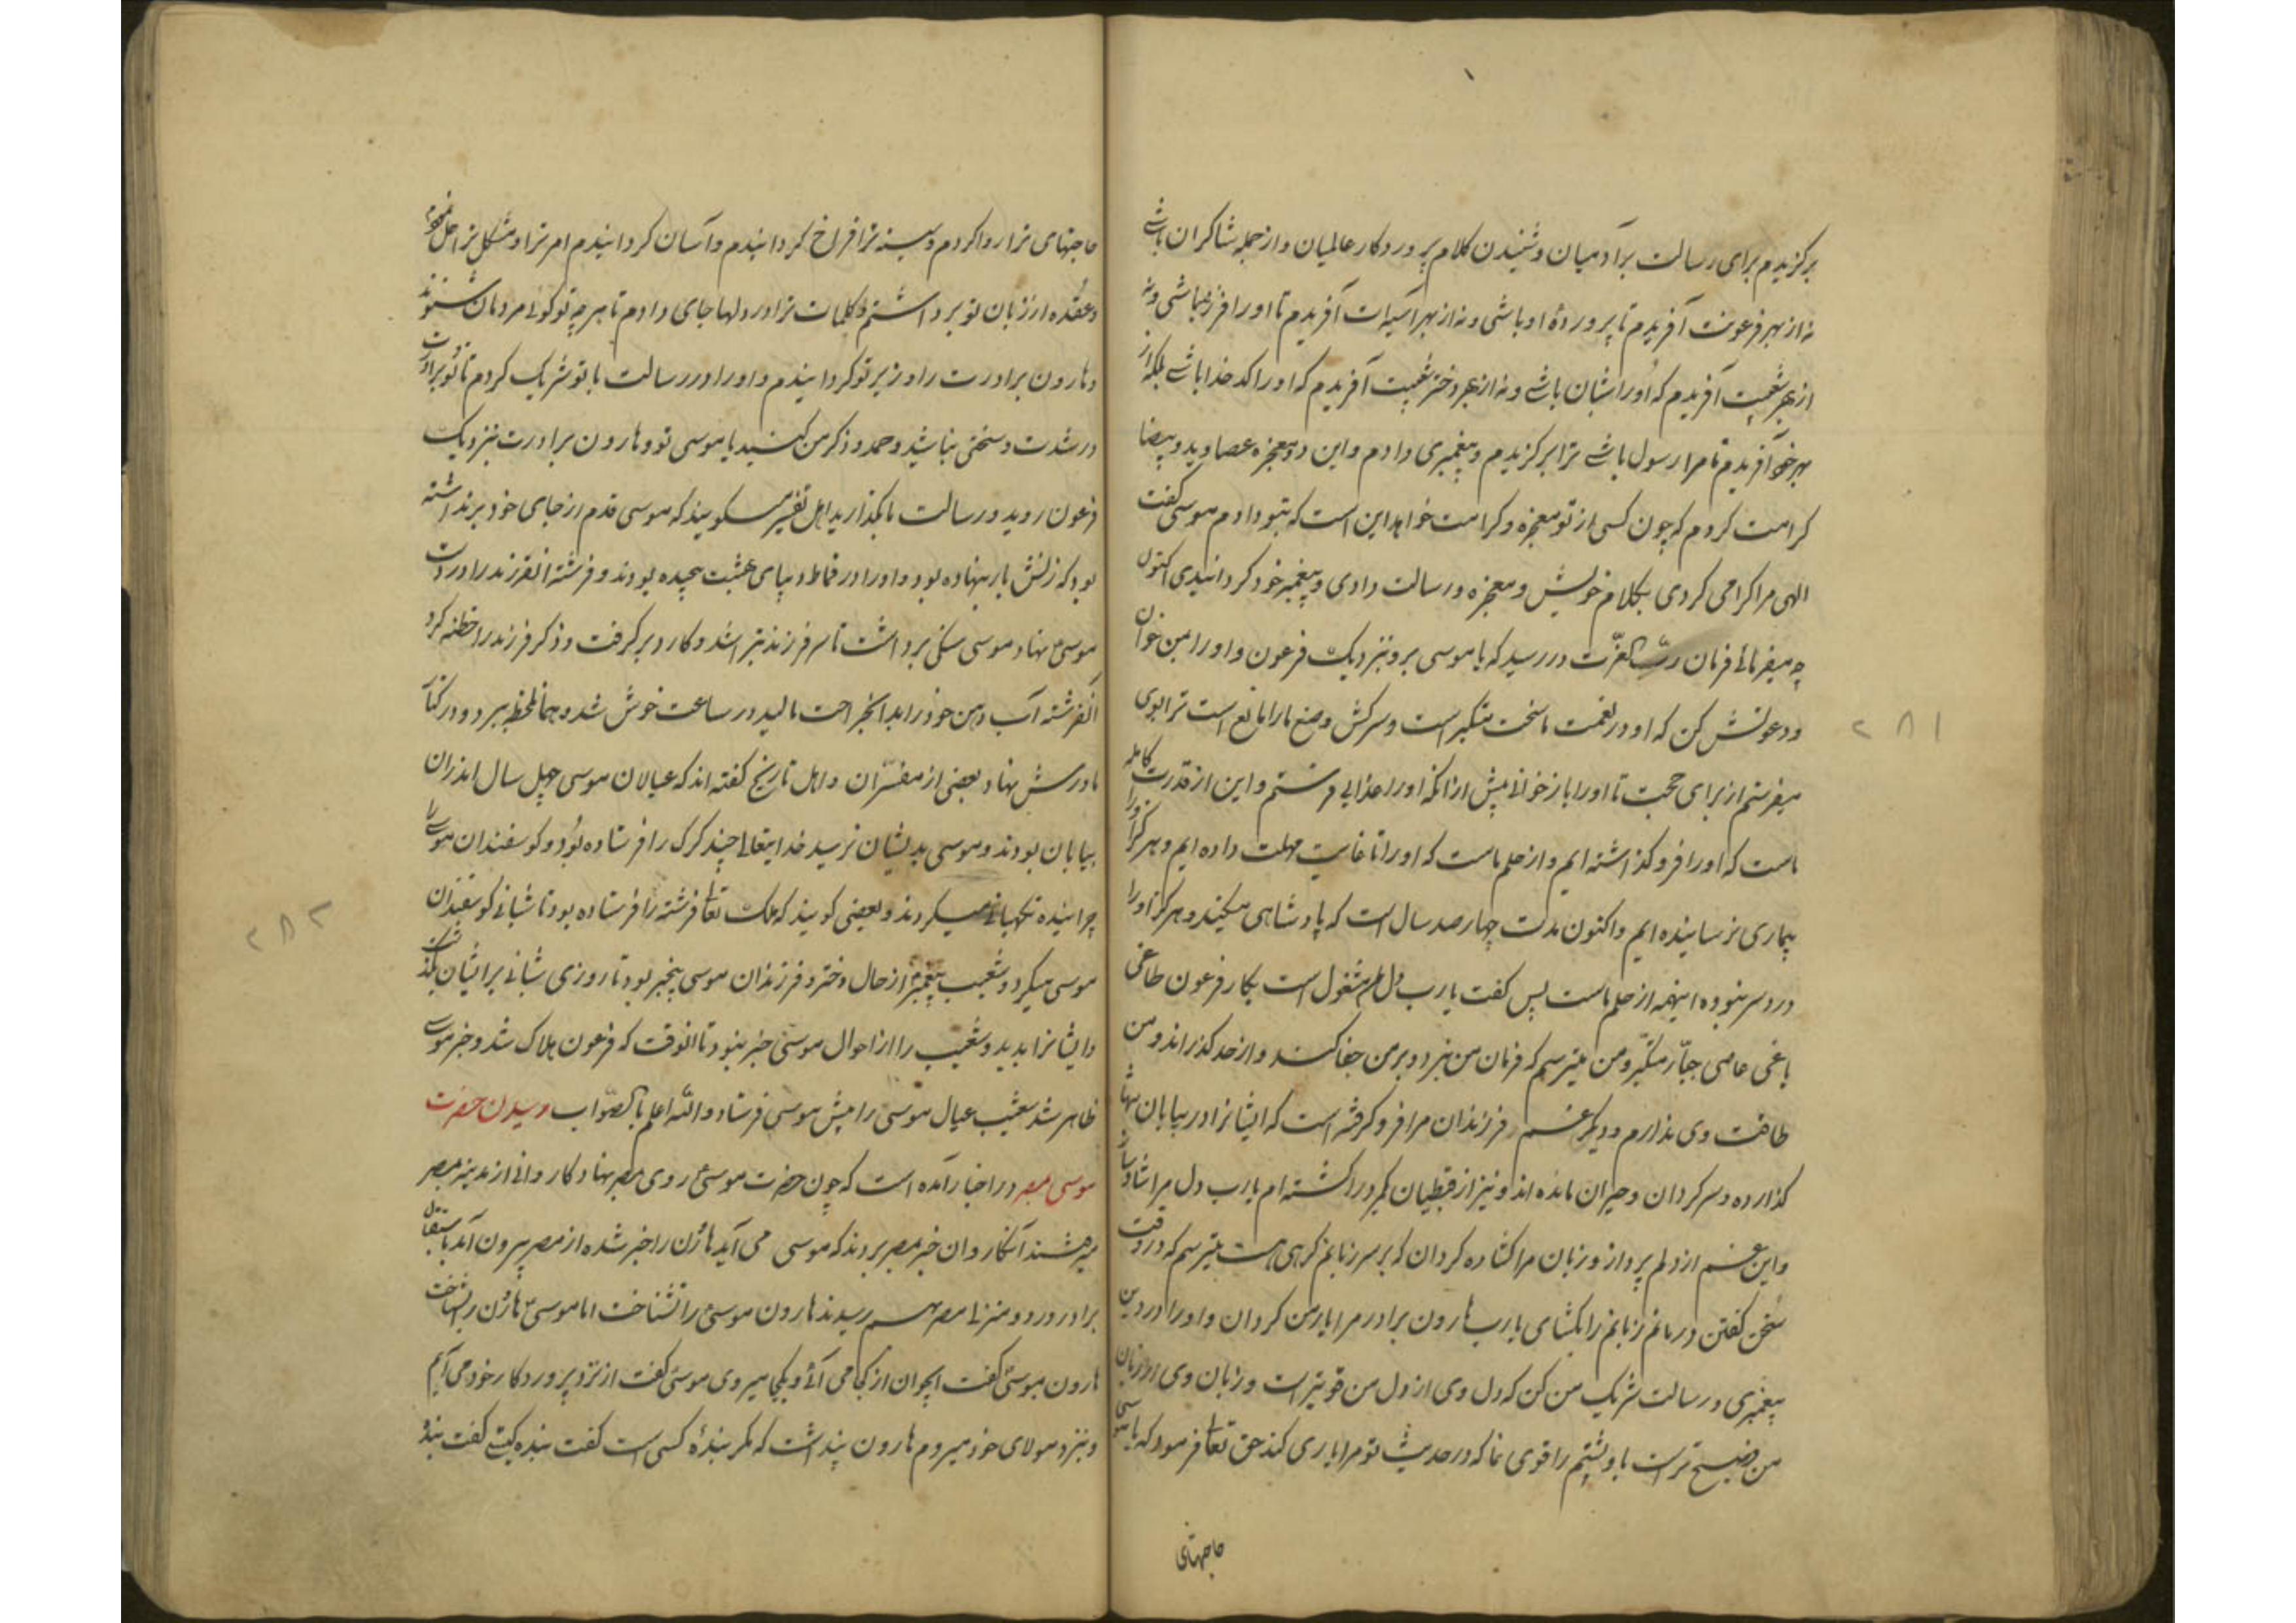 برکزیدم برای رسالت برآدمیان و شنیدن کلام پروردکار عالمیان و از جمله شاکران باشی
نه از بهر فرعونت آفریدم تا پروردهٔ او باشی و نه از بهر آسیات آفریدم تا او را فرزند باشی و نه
از بهر شعیبت آفریدم که او را شبان باشی و نه از بهر دختر شعیبت آفریدم که او را کدخدا باشی بلکه از
بهر خود آفریدم تا مرا رسول باشی ترا برکزیدم و پیغمبری دادم و این دو معجزه عصا و ید و بیضا
کرامت کردم که چون کسی از تو معجزه و کرامت خواهد این است که بتو دادم موسی کفت
الهی مرا کرامی کردی بکلام خویش و معجزه و رسالت دادی و پیغمبر خود کردانیدی اکنون
چه میفرمائی فرمان رب العزّت در رسید که یا موسی برو بنزدیک فرعون و او را بمن خوان
و دعوتش کن که او در نعمت ما سخت متکبر است و سرکش و صنع ما را مانع است ترا بوی
میفرستم از برای حجت تا او را باز خوانی پیش از آنکه او را عذابی فرستم و این از قدرت کامله
ماست که او را فروکذاشته ایم و از حلم ماست که او را تا غایت مهلت داده ایم و هرکز او را
بیماری نرسانیده ایم و اکنون مدت چهارصد سال است که پادشاهی میکند و هرکز او را
درد سر نبوده اینهمه از حلم ماست پس کفت یارب دلم مشغول است بکار فرعون طاغی
یاغی عاصی جبّار متکبّر و من میترسم که فرمان من نبرد و بر من جفا کند و از حد کذراند و من
طاقت وی ندارم و دیکر غم فرزندان مرا فرو کرفته است که ایشانرا در بیابان تنها
کذارده و سرکردان و حیران مانده اند و نیز از قبطیان یکمرد را کشته ام یارب دل مرا شاد ساز
و این غم از دلم پرداز و زبان مرا کشاده کردان که بر سر زبانم کرهی هست میترسم که در وقت
سخن کفتن درمانم زبانم را بکشای یارب هارون برادر مرا یار من کردان و او را در دین
پیغمبری و رسالت شریک من کن که دل وی از دل من قویتر است و زبان وی از زبان
من فصیح تر است باو پشتم را قوی نما که در حدیث تو مرا یاری کند حق تعا فرمود که یا موسی
حاجتهای
۲۸۱
حاجتهای ترا روا کردم و سینه ترا فراخ کردانیدم و آسان کردانیدم امر ترا و مشکل ترا حل نمودم
و عقده از زبان تو برداشتم و کلمات ترا در دلها جای دادم تا هر چه تو کوئی مردمان شنوند
و هارون برادرت را وزیر تو کردانیدم و او را در رسالت با تو شریک کردم تا تو و برادرت
در شدت و سختی نباشید و حمد و ذکر من کنید یا موسی تو و هارون برادرت بنزدیک
فرعون روید و رسالت ما بکذارید اهل تفسیر میکویند که موسی قدم از جای خود برنداشته
بود که زنش بار نهاده بود و او را در قماط دیبای بهشت پیچیده بودند و فرشته انفرزند را در دست
موسیٰ نهاد موسی سنکی برداشت تا سر فرزند بتراشد و کارد برکرفت و ذکر فرزند را ختنه کرد
آنفرشته آب دهن خود را بدانجراحت مالید در ساعت خوش شد و همانلحظه ببرد و در کنار
مادرش نهاد و بعضی از مفسّران و اهل تاریخ کفته اند که عیالان موسی چهل سال اندران
بیابان بودند و موسی بدیشان نرسید خدایتعالی چند کرک را فرستاده بود و کوسفندان موسی را
چرانیده نکهبانی میکردند و بعضی کویند که ملک تعا فرشته را فرستاده بود تا شبانی کوسفندان
موسی میکرد و شعیب پیغمبر از حال دختر و فرزندان موسی بیخبر بود تا روزی شبانی برایشان بکذشت
و ایشانرا بدید و شعیب را از احوال موسی خبر نبود تا انوقت که فرعون هلاک شد و خبر موسی
ظاهر شد شعیب عیال موسی را پیش موسی فرستاد والله اعلم بالصّواب رسیدن حضرت
موسی بمصر در اخبار آمده است که چون حضرت موسی روی بمصر نهاد کاروانی از مدینه بمصر
میرفتند آنکاروان خبر بمصر بردند که موسی می آید هارون را خبر شده از مصر بیرون آمد باستقبال
برادر و در دو منزلی مصر بهم رسیدند هارون موسی را نشناخت اما موسی هارون را شناخت
هارون بموسی کفت ایجوان از کجا می آئی و بکجا میروی موسی کفت از نزد پروردکار خود می آیم
و بنزد مولای خود میروم هارون پنداشت که مکر بندهٔ کسی است کفت بنده کیستی کفت بندهٔ
۲۸۲